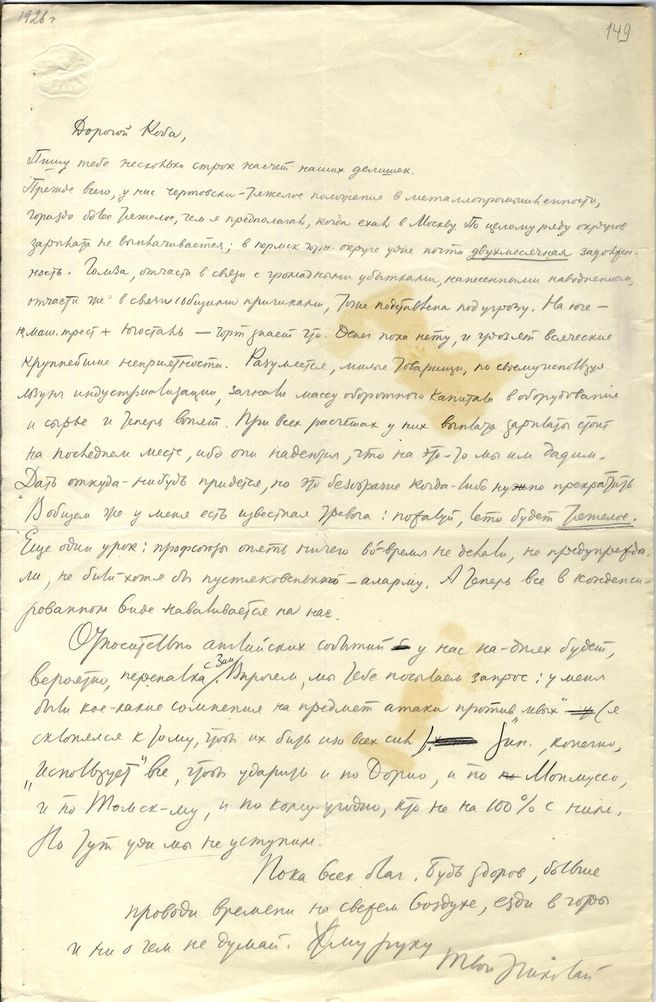 1926 г
149
Дорогой Коба,
Пишу тебе несколько строк насчет наших делишек.
Прежде всего, у нас чертовски-тяжелое положение в металлопромышленности,
гораздо более тяжелое, чем я предполагал, когда ехал в Москву. По целому ряду округов
зарплата не выплачивается; в пермск. горн. округе уже почти двухмесячная задолжен-
ность. Гомза, отчасти в связи с громадными убытками, нанесенными наводнением,
отчасти же в связи с общими причинами, тоже поставлена под угрозу. На юге –
маштрест + Югосталь – чорт знает что. Денег пока нету, и грозят всяческие
крупнейшие неприятности. Разумеется, милые товарищи, по своему используя
лозунг индустриализации, загнали массу оборотного капитала в оборудование
и сырье и теперь вопят. При всех расчетах у них выплата зарплаты стоит
на последнем месте, ибо они надеются, что на это-то мы им дадим.
Дать откуда-нибудь придется, но это безобразие когда-либо нужно прекратить
В общем же у меня есть известная тревога: пожалуй, лето будет тяжелое.
Еще один урок: профсоюзы опять ничего во-время не делали, не предупрежда-
ли, не били хотя бы аларму. А теперь все в конденси-
рованном виде наваливается на нас.
Относительно английских событий у нас на-днях будет,
вероятно, перепалка с Зин. Впрочем, мы тебе посылаем запрос: у меня
были кое-какие сомнения на предмет атаки против "левых" (я
склонялся к тому, чтоб их бить изо всех сил). Зин., конечно,
"использует" все, чтоб ударить и по Дорио, и по Монмуссо,
и по Томск-му, и по кому угодно, кто не на 100% с ним.
Но тут уж мы не уступим.
Пока всех благ. Будь здоров, больше
проводи времени на свежем воздухе, езди в горы
и ни о чем не думай. Жму руку
Твой Николай